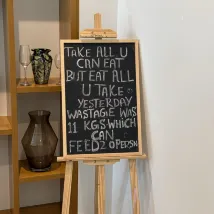 TAKE ALL U
CAN EAT
BUT EAT ALL
U TAKE :-
YESTERDAY
WASTAGE WAS
11 KGS WHICH
CAN
FEED 20 PEPSN